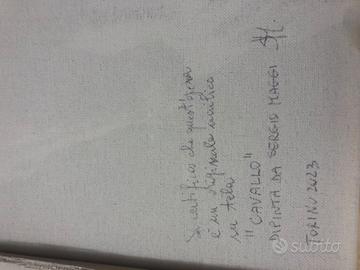 Si certifica che quest'opera
è un originale acrilico
su tela
"CAVALLO"
DIPINTA DA SERGIO MAGGI
TORINO 2023
subito